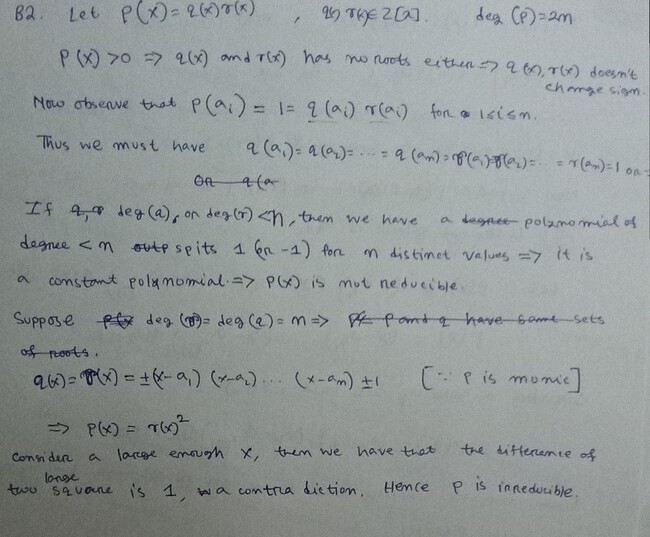 B2. Let P(x) = q(x)r(x) , q(x), r(x) ∈ Z[x]. deg (P) = 2n
P(x) > 0 ⇒ q(x) and r(x) has no roots either ⇒ q(x), r(x) doesn't
change sign.
Now observe that P(ai) = 1 = q(ai) r(ai) for 1≤i≤n.
Thus we must have q(a1) = q(a2) = ··· = q(an) = r(a1) = r(a2) = ·· = r(an) = 1 or -
or q(a
If q, r deg(q), or deg(r) < n, then we have a degree polynomial of
degree < n outp spits 1 (or -1) for n distinct values ⇒ it is
a constant polynomial ⇒ P(x) is not reducible.
Suppose deg (r) = deg (q) = n ⇒ P and q have same sets
of roots.
q(x) = r(x) = ±(x-a1) (x-a2) ··· (x-an) ±1 [∵ P is monic]
⇒ P(x) = r(x)²
Consider a large enough x, then we have that the difference of
large
two square is 1, a contradiction. Hence P is irreducible.